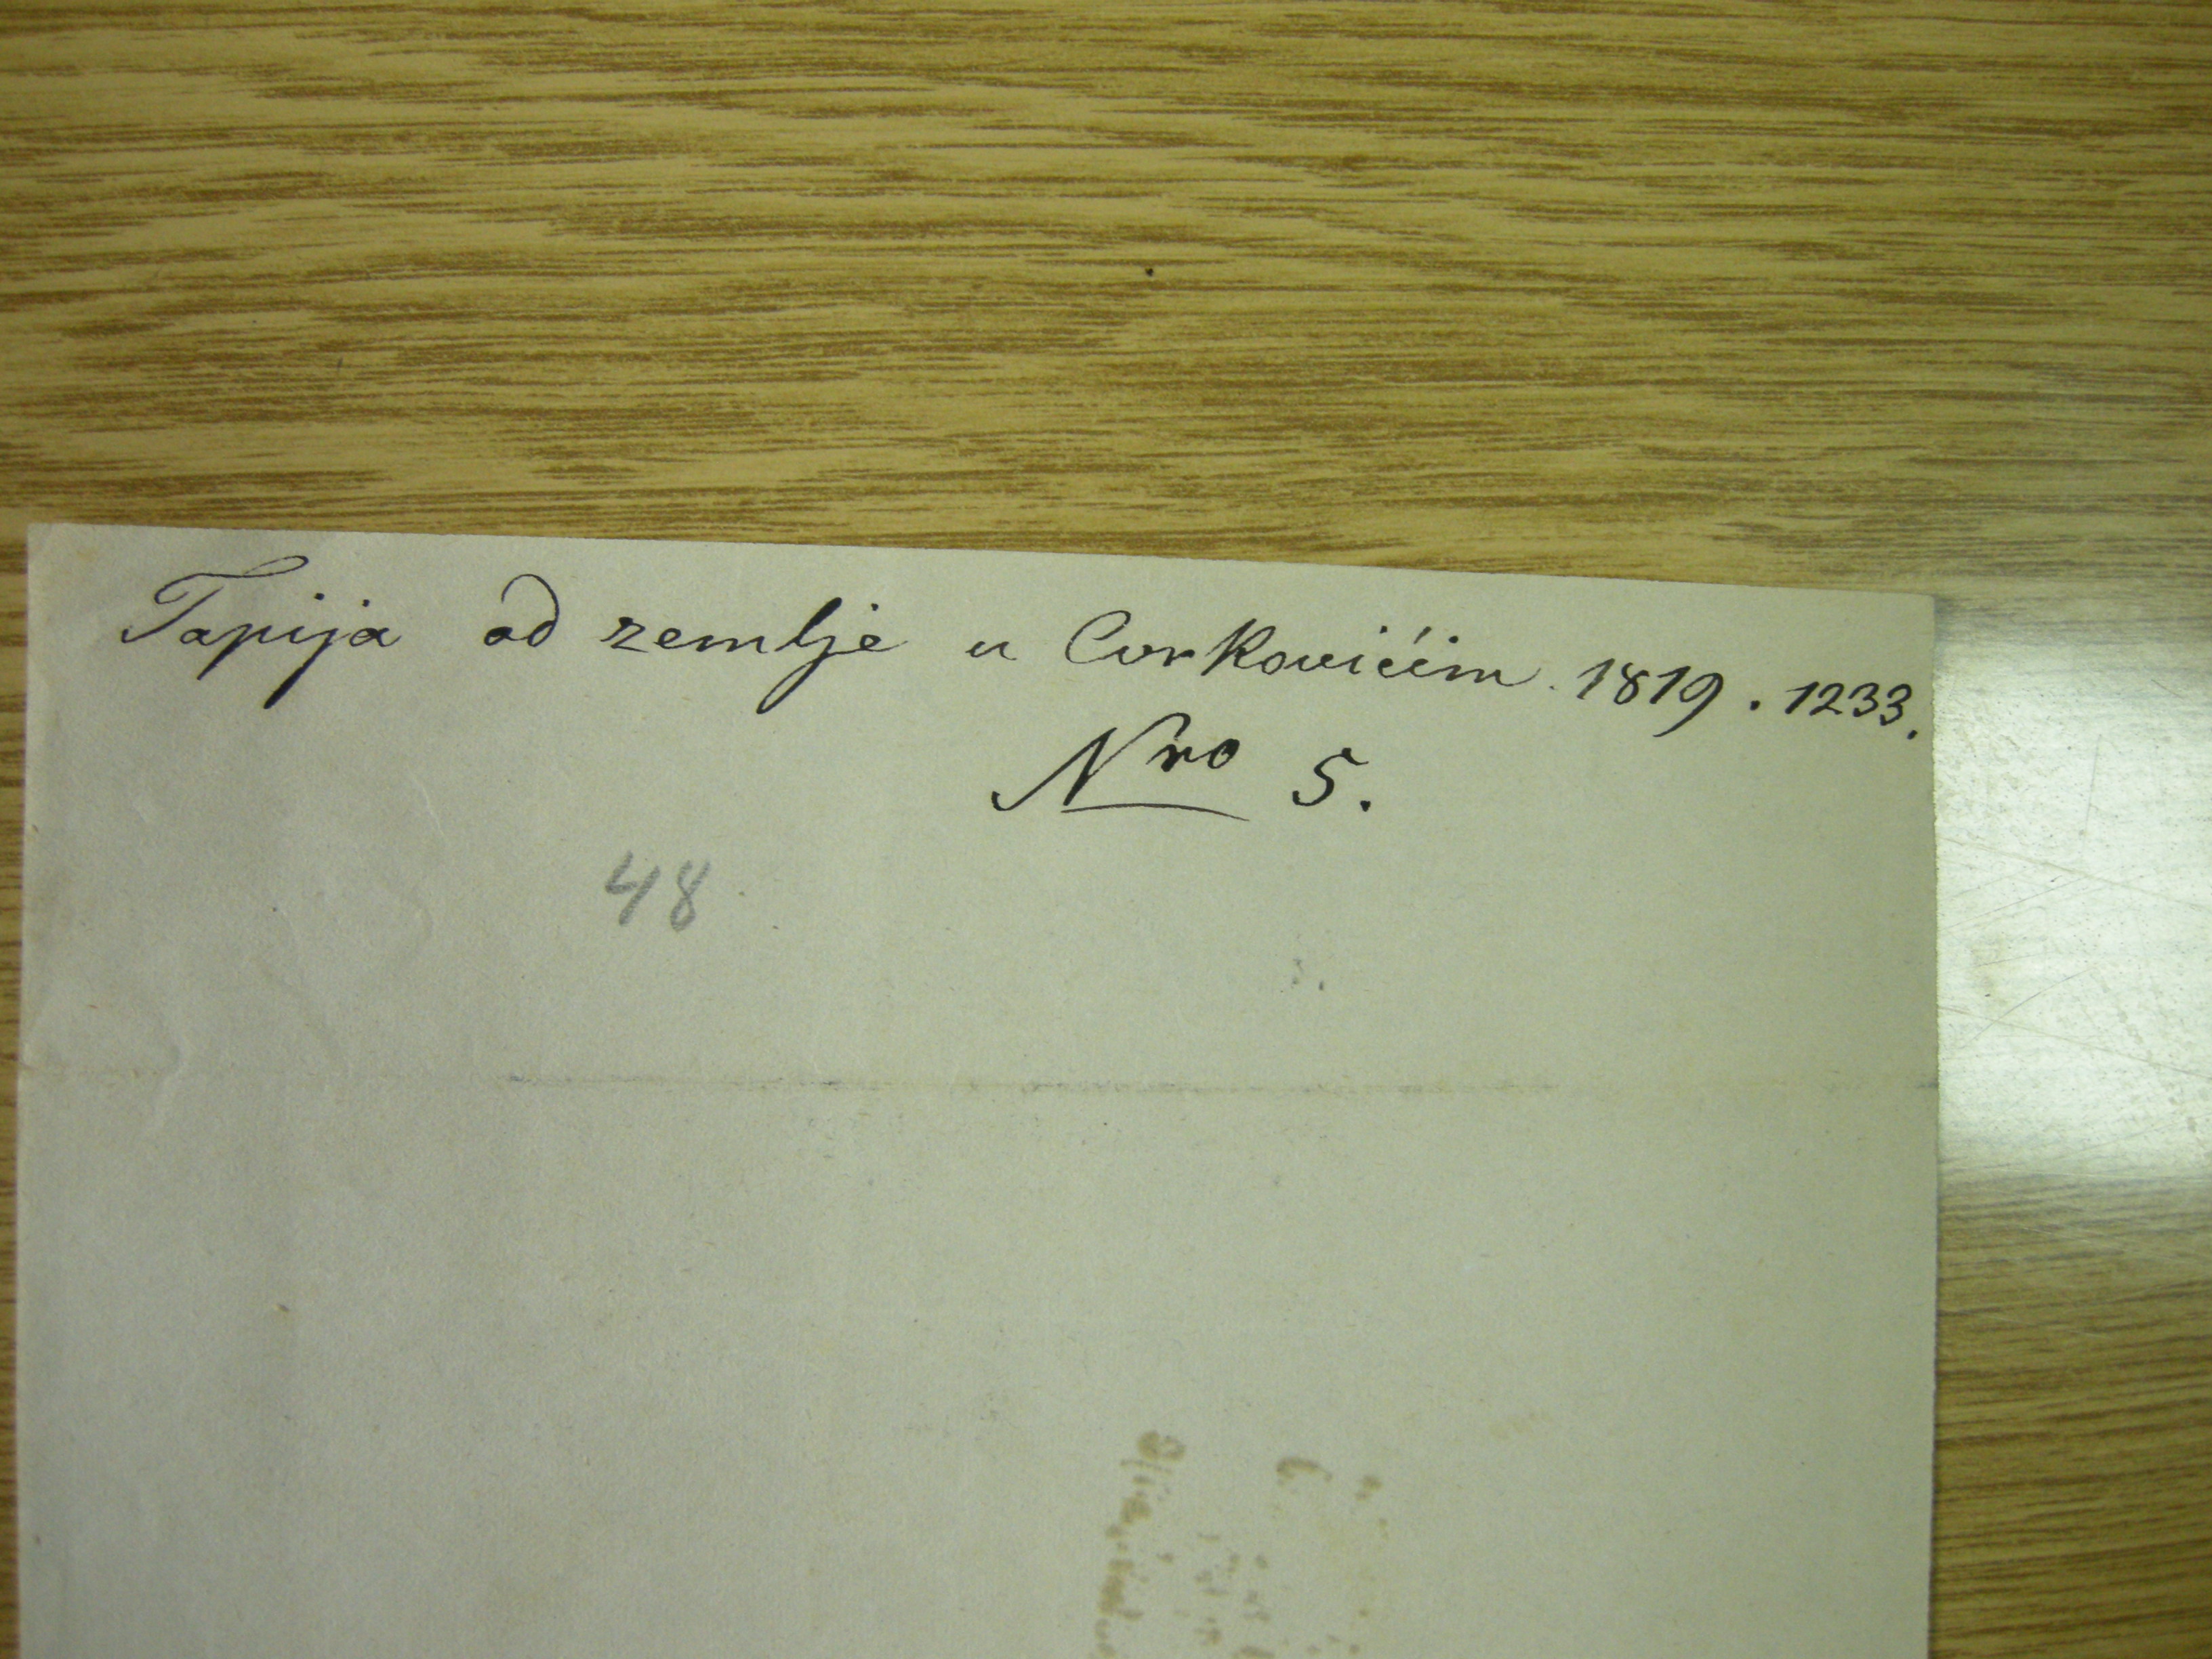 Tapija od zemlje u Curkovićim 1819. 1233.
Nro 5.
48